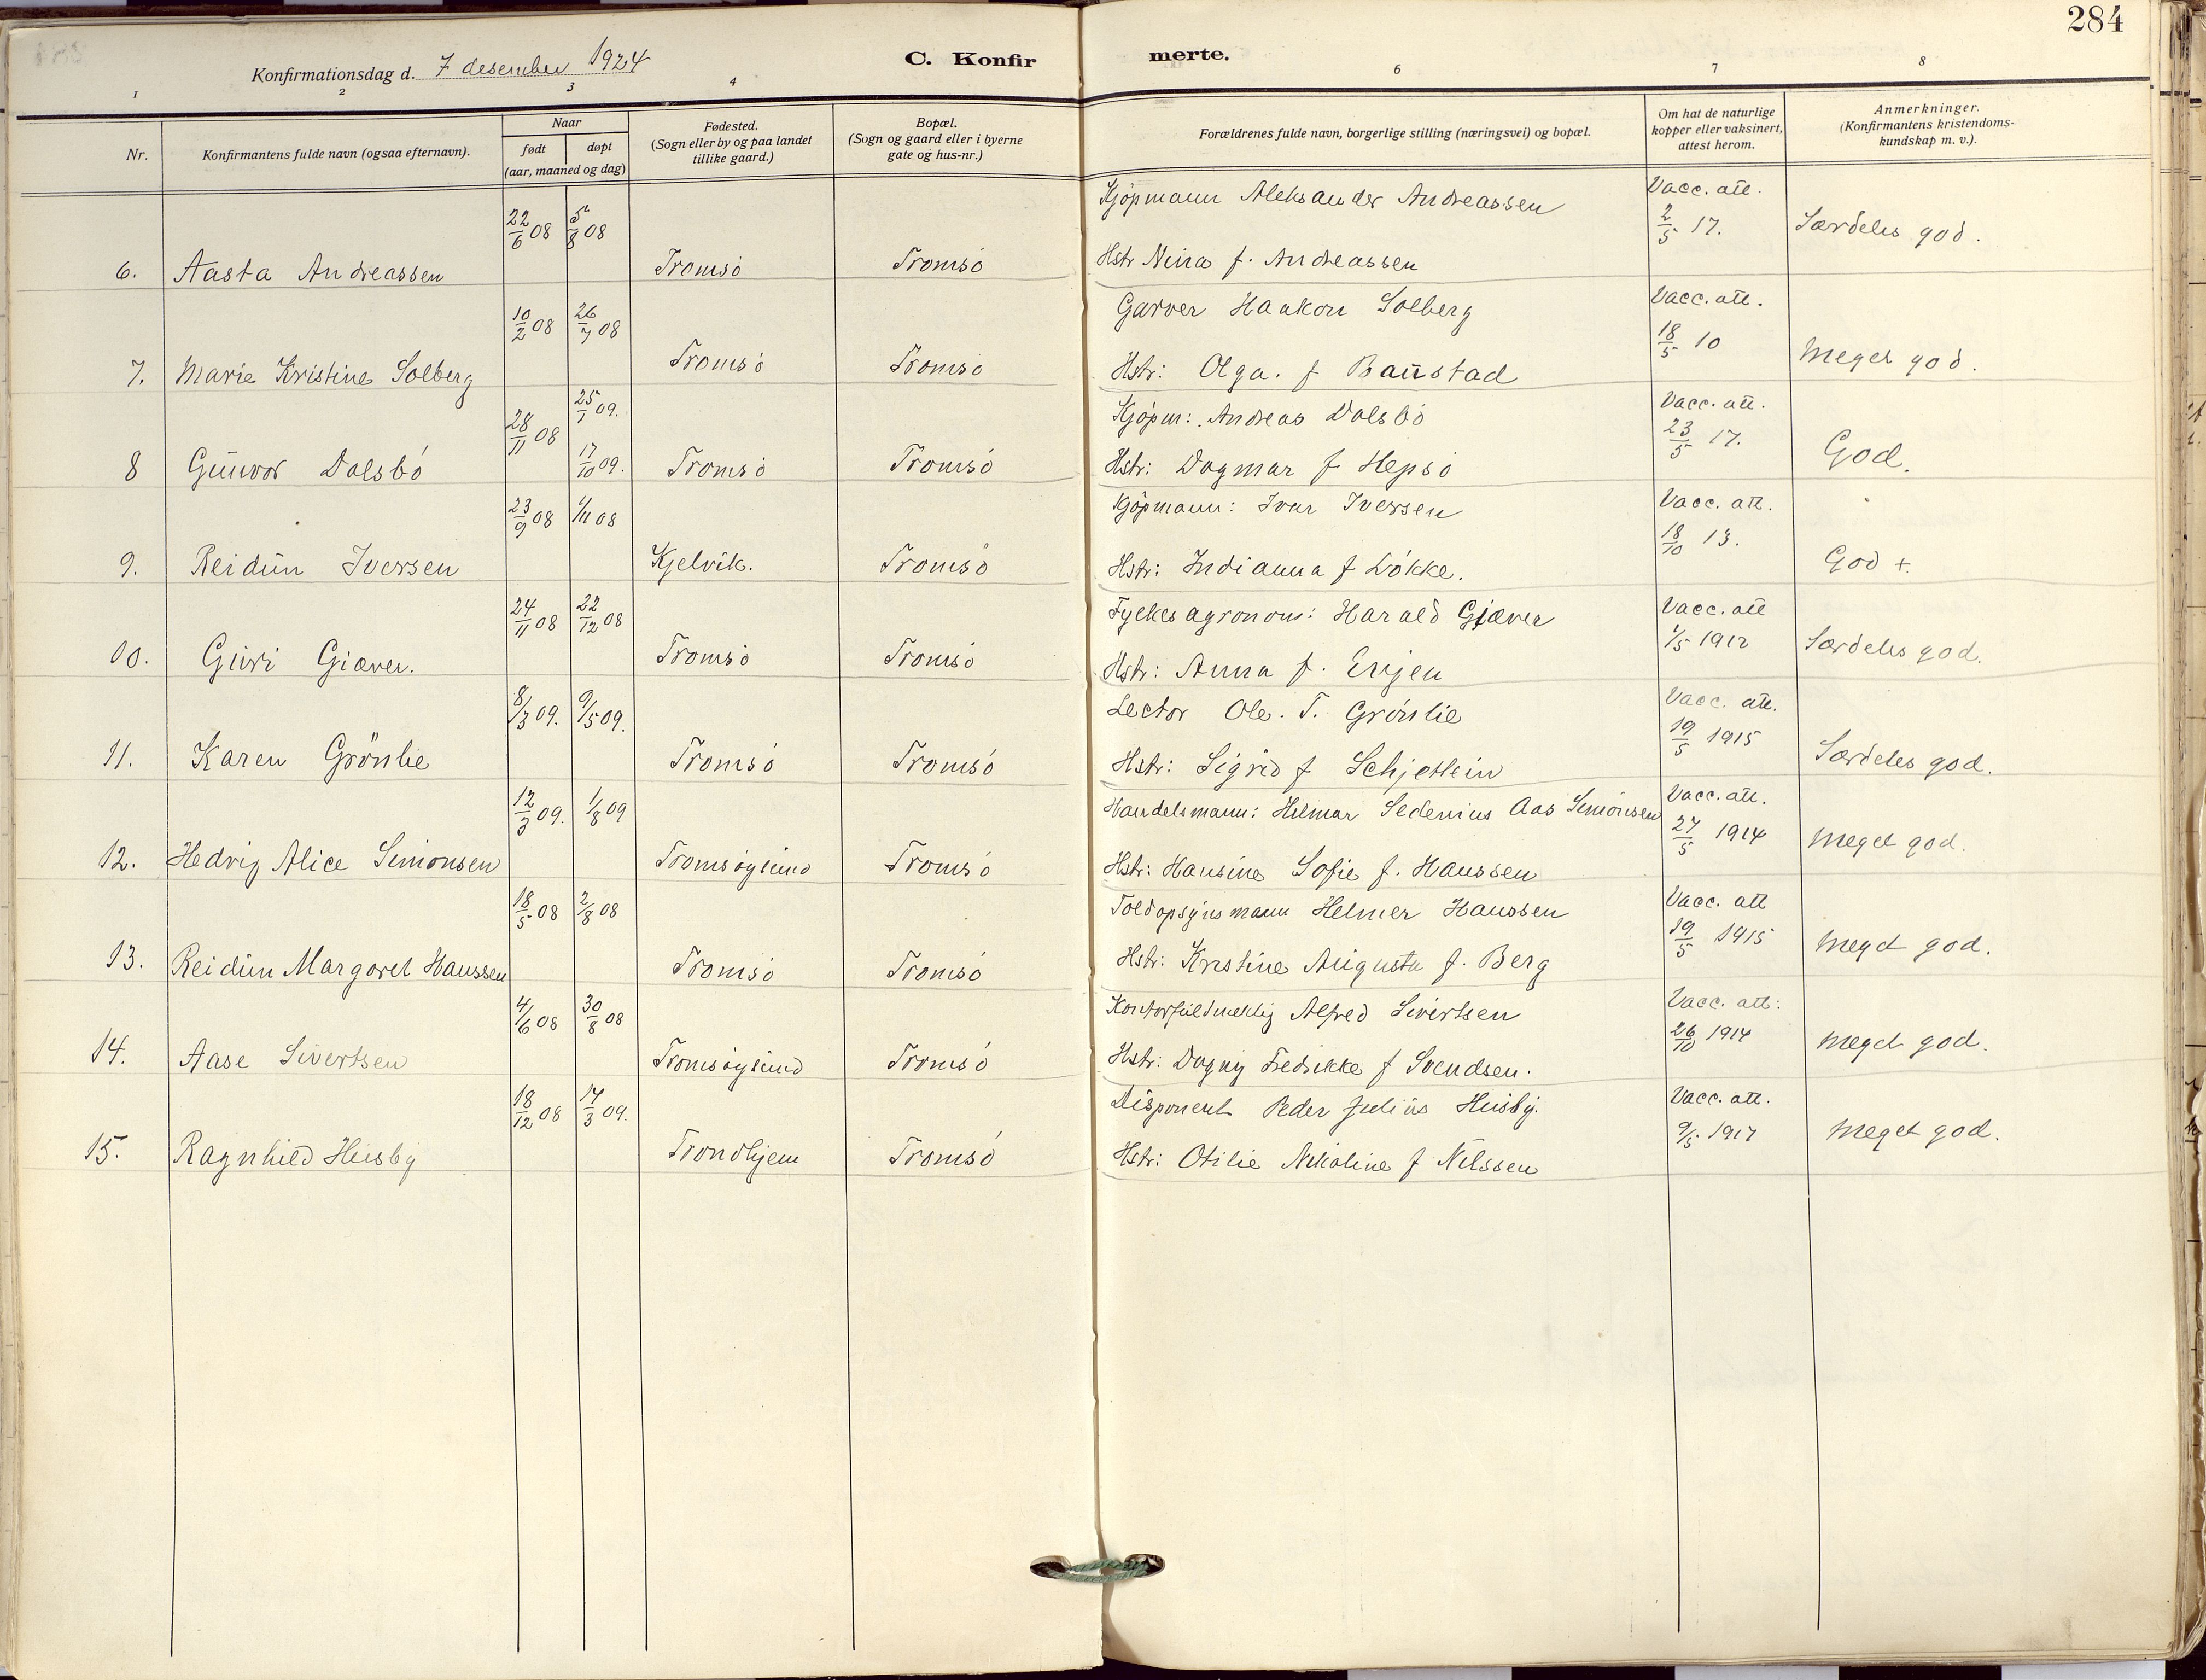 284
Konfirmationsdag d. 7 desember 1924
C. Konfirmerte.
1 2 3 4 6 7 8
Nr.
Konfirmantens fulde navn (ogsaa efternavn).
Naar
født
døpt
(aar, maaned og dag)
Fødested.
(Sogn eller by og paa landet
tillike gaard.)
Bopæl.
(Sogn og gaard eller i byerne
gate og hus-nr.)
Forældrenes fulde navn, borgerlige stilling (næringsvei) og bopæl.
Om hat de naturlige
kopper eller vaksinert,
attest herom.
Anmerkninger.
(Konfirmantens kristendoms-
kundskap m. v.).
Kjöpmann Aleksander Andreassen Vacc. att.
22/6 08 5/8 08 2/5 17. Særdeles god.
6. Aasta Andreassen Tromsö Tromsö Hstr Nina f. Andreassen
Garver Haakon Solberg Vacc. att.
10/2 08 26/7 08 18/5 10
7. Marie Kristine Solberg Tromsö Tromsö Hstr: Olga. f Baustad Meget god.
25/1 09. Kjöpm: Andreas Dalsbö Vacc. att.
28/11 08 23/5 17.
8 Gunvor Dalsbö 17/10 09. Tromsö Tromsö Hstr: Dagmar f Hepsö God.
23/9 08 1/11 08 Kjöpmann: Ivar Iversen Vacc. att.
18/10 13.
9. Reidun Iversen Kjelvik. Tromsö Hstr: Indianna f Lökke. God +
24/11 08 22/12 08 Fylkesagronom: Harald Giæver Vacc. att
1/5 1912
10. Guri Giæver. Tromsö Tromsö Hstr: Anna f. Enjen Særdeles god.
8/3 09. 9/5 09. Lector Ole. T. Grönlie Vacc. att.
19/5 1915
11. Karen Grönlie Tromsö Tromsö Hstr: Sigrid f Schjetlein Særdeles god.
12/3 09. 1/8 09 Handelsmann: Hilmar Sedenius Aas Simonsen Vacc. att.
27/5 1914
12. Hedvig Alice Simonsen Tromsöysund Tromsö Hstr: Hansine Sofie f. Hanssen Meget god.
18/5 08 2/8 08 Toldopsynsmann Helmer Hanssen Vacc. att
19/5 1915
13. Reidun Margaret Hanssen Tromsö Tromsö Hstr: Kristine Augusta f. Berg Meget god.
4/6 08 30/8 08 Kontorfuldmektig Alfred Sivertsen Vacc. att:
26/10 1914
14. Aase Sivertsen Tromsöysund Tromsö Hstr: Dagny Fredrikke f Svendsen. Meget god.
18/12 08 14/3 09. Disponent Peder Julius Husby. Vacc. att.
9/5 1917
15. Ragnhild Husby Trondhjem Tromsö Hstr: Otilie Nikoline f Nilssen Meget god.